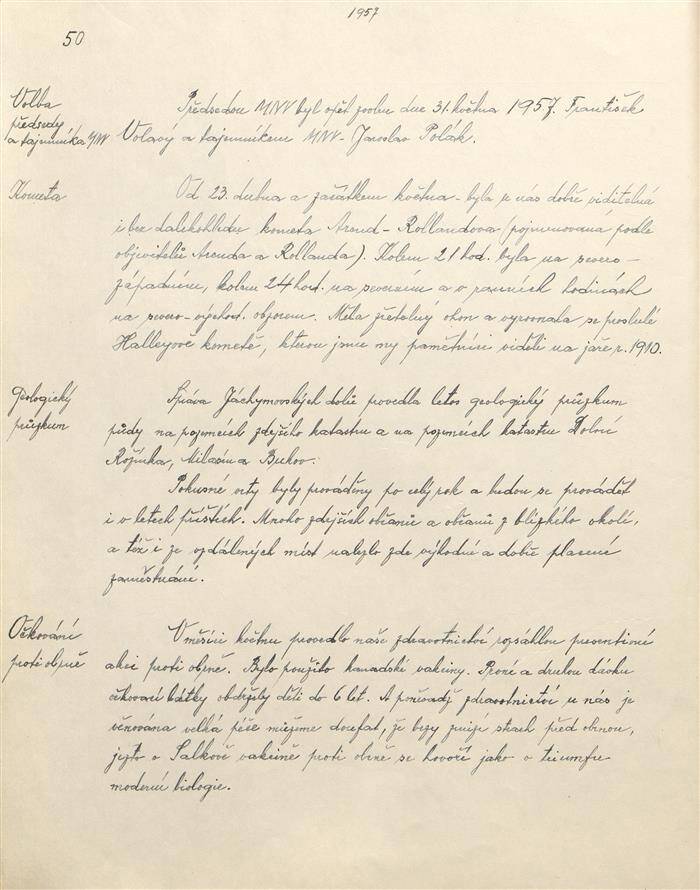 1957
50
Volba
předsedy
a tajemníka MNV
Předsedou MNV byl opět zvolen dne 31. května 1957. František
Volavý a tajemníkem MNV - Jaroslav Polák.
Kometa
Od 23. dubna a začátkem května - byla u nás dobře viditelná
i bez dalekohledu kometa Arend - Rollandova (pojmenovaná podle
objevitelů Arenda a Rollanda). Kolem 21 hod. byla na severo -
západním, kolem 24 hod. na severním a v ranních hodinách
na severo-východ. obzorem. Měla zřetelný ohon a vyrovnala se proslulé
Halleyově kometě, kterou jsme my pamětníci viděli na jaře r. 1910.
Geologický
průzkum
Správa Jáchymovských dolů provedla letos geologický průzkum
půdy na pozemcích zdejšího katastru a na pozemcích katastru Dolní
Rožínka, Milasín a Bukov.
Pokusné vrty byly prováděny po celý rok a budou se provádět
i v letech příštích. Mnoho zdejších občanů a občanů z blízkého okolí,
a též i ze vzdálených míst nalezlo zde výhodné a dobře placené
zaměstnání.
Očkování
proti obrně
V měsíci květnu provedlo naše zdravotnictví rozsáhlou preventivní
akci proti obrně. Bylo použito kanadské vakciny. Prvné a druhou dávku
očkovací látky obdržely děti do 6 let. A poněvadž zdravotnictví u nás je
věnována velká péče můžeme doufat, že brzy zmizí strach před obrnou,
ježto o Salkově vakcině proti obrně se hovoří jako o triumfu
moderní biologie.